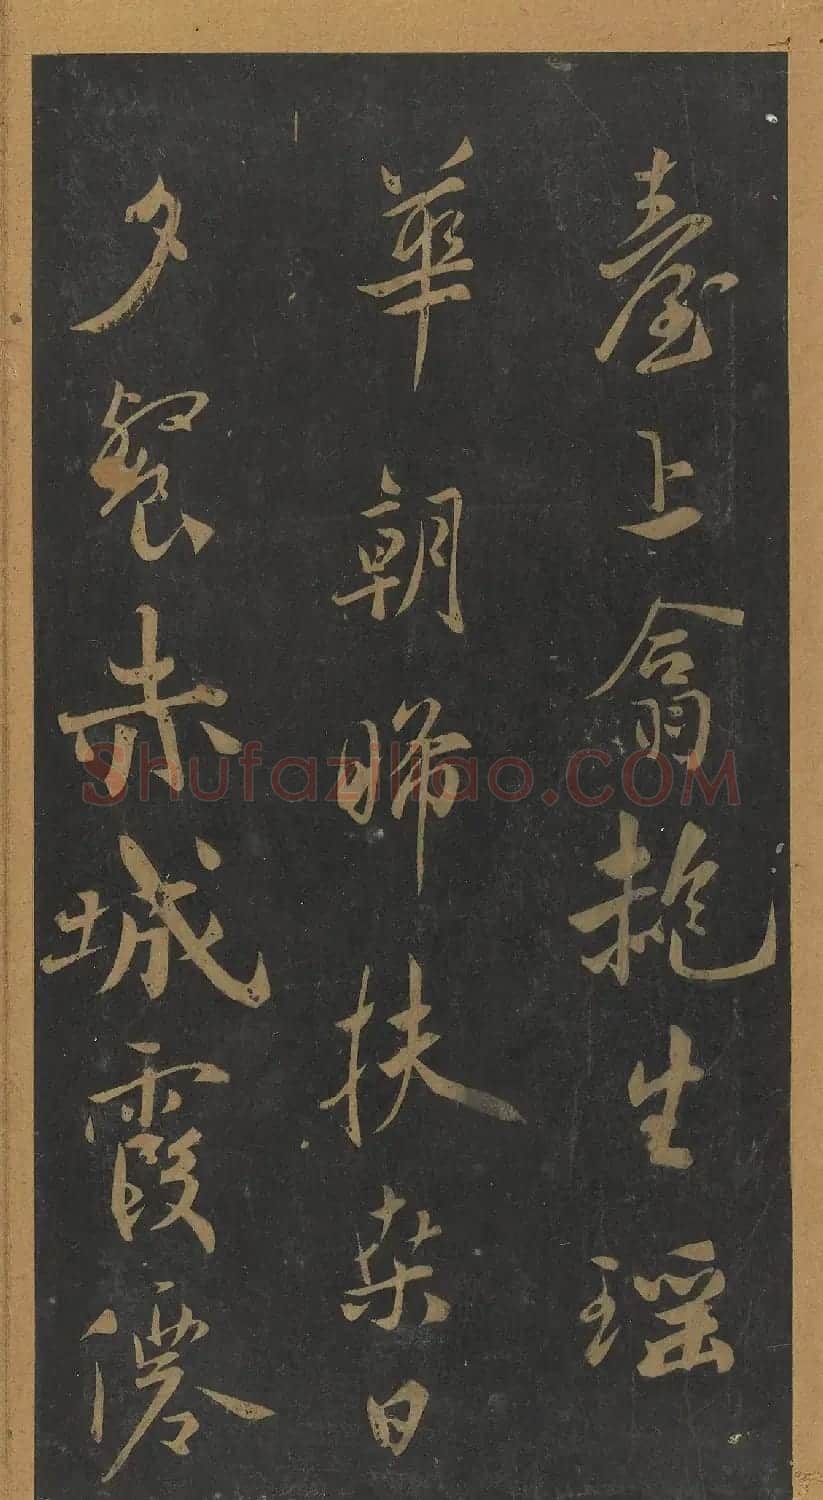 臺上翕赩生瑶
華朝晞扶桒日
夕餐赤城霞僊
Shufaziliao.COM